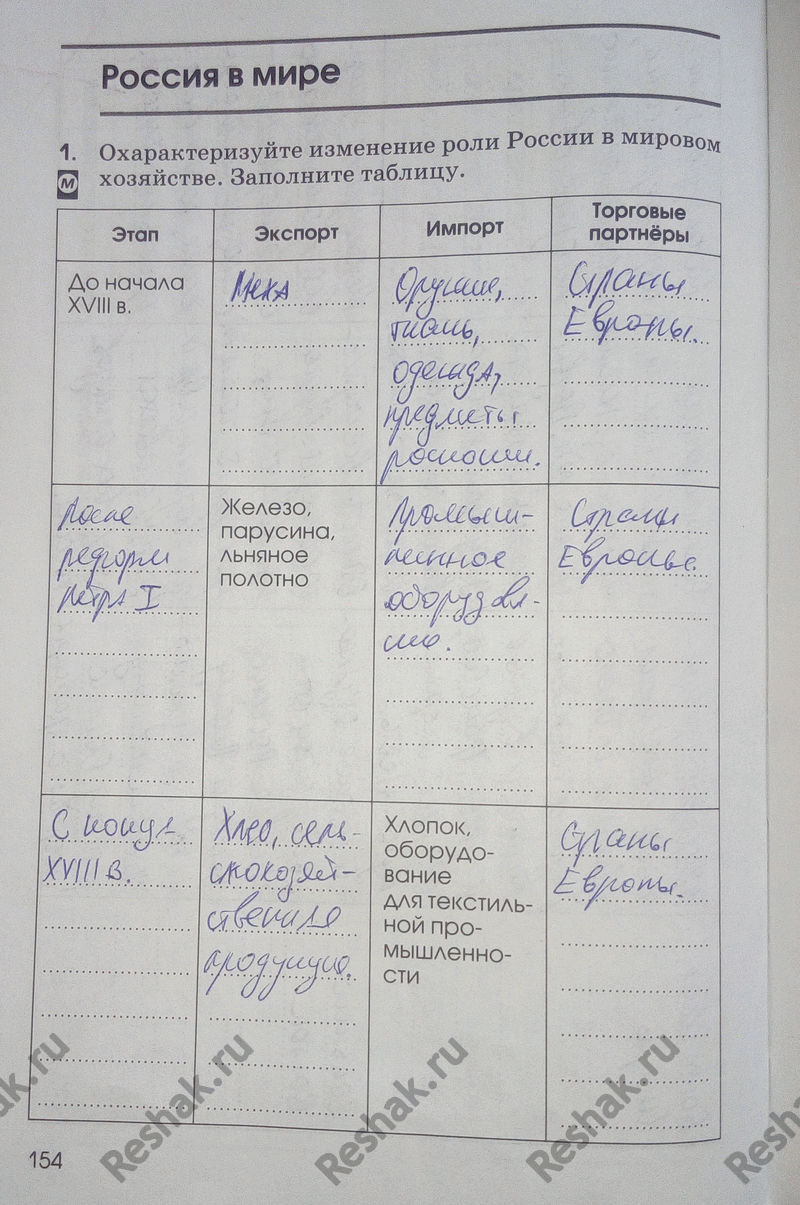 Россия в мире
1. Охарактеризуйте изменение роли России в мировом
М хозяйстве. Заполните таблицу.
Этап
Экспорт
Импорт
Торговые
партнёры
До начала
XVIII в.
Меха
Оружие,
ткань,
одежда,
предметы
роскоши.
Страны
Европы.
После
реформ
Петра I
Железо,
парусина,
льняное
полотно
Промыш-
ленное
оборудова-
ние.
Страны
Европы.
С конца
XVIII в.
Хлеб, сель-
скохозяй-
ственная
продукция.
Хлопок,
оборудо-
вание
для текстиль-
ной про-
мышленно-
сти
Страны
Европы.
154
Reshak.ru
Reshak.ru
Reshak.ru